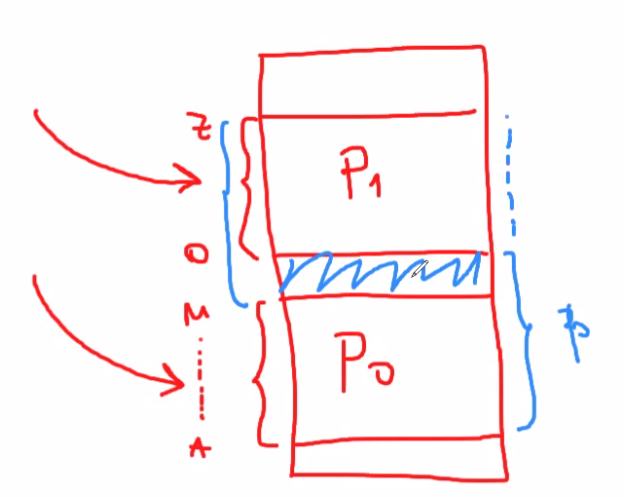 Z
P1
O
M
P0
A